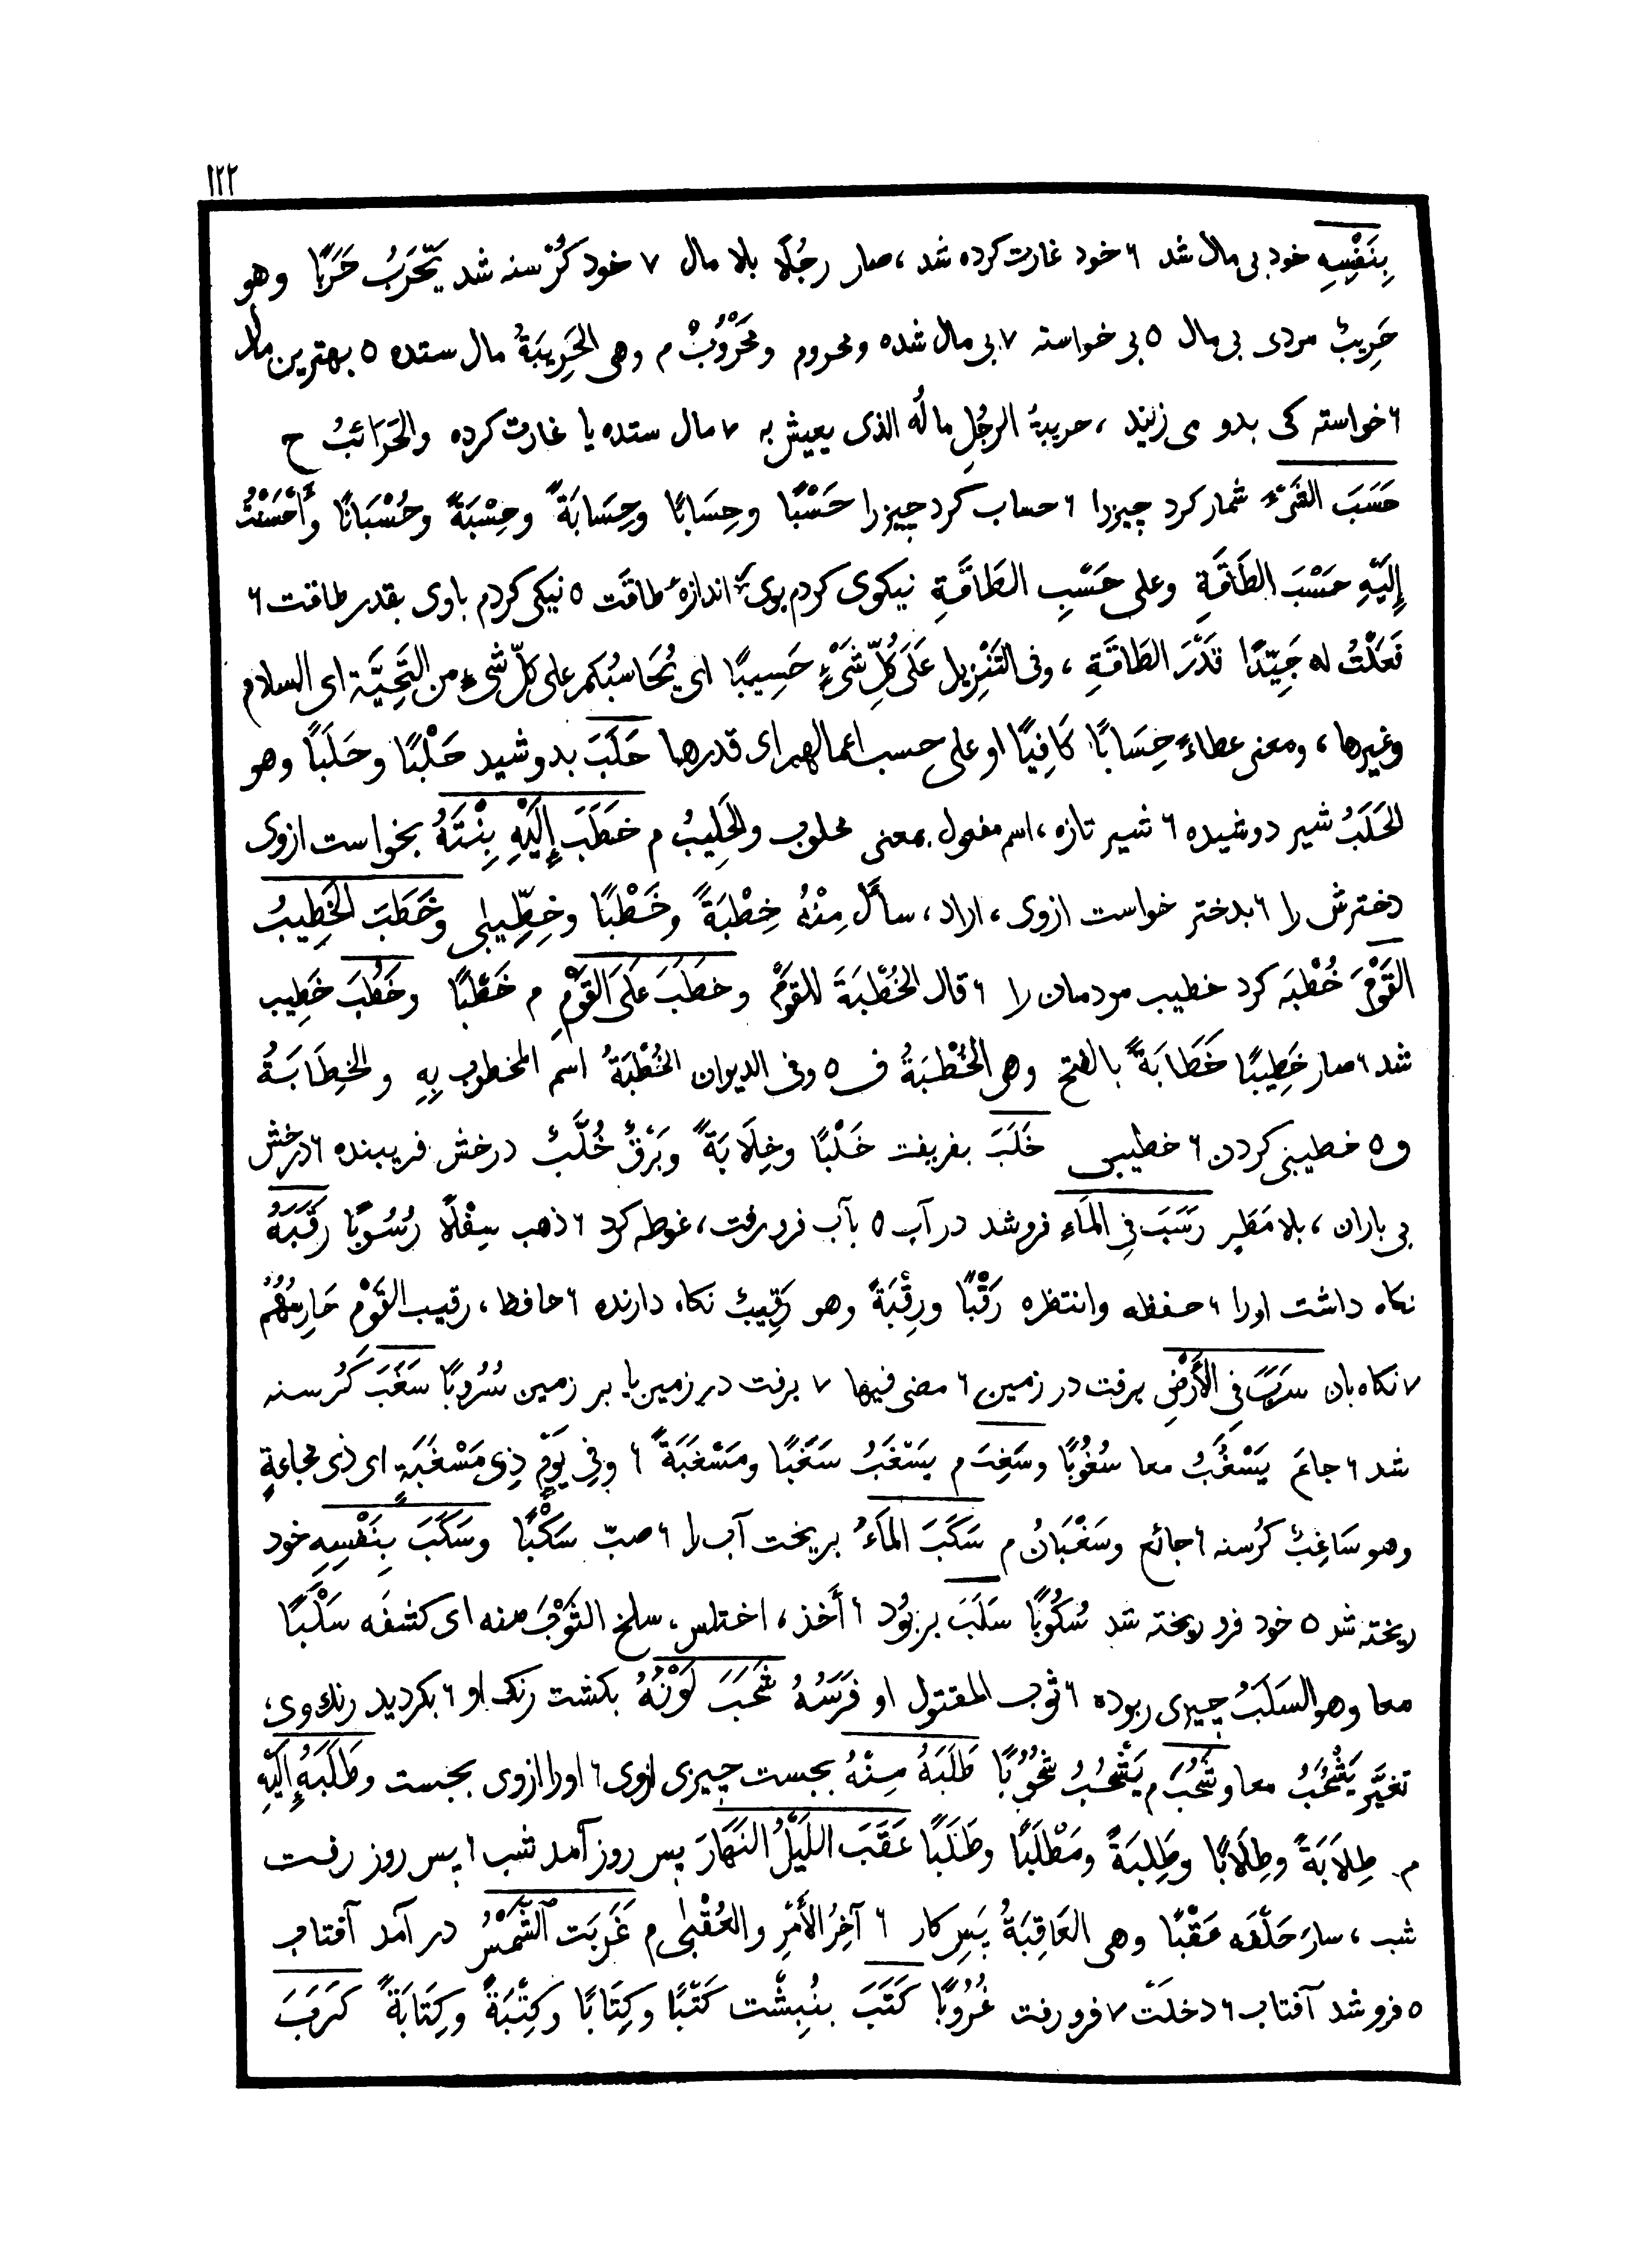 ١٢٢
بِنَفْسِهِ خود بی مال شد ٦ خود غارت کرده شد، صار رجُلًا بلا مال ٧ خود کُرْسنه شد یَحْرَبُ حَرَبًا وهو
حَرِیبٌ مردی بی مال ٥ بی خواسته ٧ بی مال شده ومحروم ومَحْرُوبٌ م وهی الحَرِیبَةُ مال ستده ٥ بهترین مال
٦ خواسته کی بدو می زیند، حریبةُ الرجُلِ مالُه الذی یعیش به ٧ مال ستده یا غارت کرده والحَرَائبُ ح
حَسَبَ الشَیْءَ شمار کرد چیزرا ٦ حساب کرد چیزرا حَسْبًا وحِسَابًا وحِسَابَةً وحِسْبَةً وحُسْبَانًا وأَحْسَنْتُ
إِلَیْهِ حَسْبَ الطَاقَةِ وعلی حَسْبِ الطَاقَةِ نیکوی کردم بوی بر اندازهٔ طاقت ٥ نیکی کردم باوی بقدر طاقت ٦
فَعَلْتُ له جَیِّدًا قَدْرَ الطَاقَةِ، وفی التَنْزِیل عَلَی کُلِّ شَیْءٍ حَسِیبًا ای یُحَاسُبُکم علی کلّ شیءٍ من التَحِیَّة ای السلام
وغیرها، ومعنی عطاءً حِسَابًا کَافِیًا او علی حسب اعمالهم ای قدرها حَلَبَ بدوشید حَلْبًا وحَلَبًا وهو
الحَلَبُ شیر دوشیده ٦ شیر تازه، اسم مفعول بمعنی محلوب والحَلِیبُ م خَطَبَ إِلَیْهِ بِنْتَهُ بخواست ازوی
دخترش را ٦ بدختر خواست ازوی، اراد، سأل مِنْهُ خِطْبَةً وخَطْبًا وخِطِّیبٰی وخَطَبَ الخَطِیبُ
القَوْمَ خُطْبَه کرد خطیب مردمان را ٦ قال الخُطْبَةَ للقومْ وخطَبَ عَلَی القَوْمِ م خَطْبًا وخَطُبَ خَطِیب
شد ٦ صار خَطِیبًا خَطَابَةً بالفتح وهی الخُطْبَةُ ف ٥ وفی الدیوان الخُطْبَةُ اسم المخطوب بِهِ والخِطَابَةُ
و ٥ خطیبی کردن ٦ خطیبی خَلَبَ بفریفت خَلْبًا وخِلَابَةً وبَرْقٌ خُلَّبٌ درخش فریبنده ٦ درخش
بی باران، بلا مَطَرٍ رَسَبَ فِی المَاءِ فروشد در آب ٥ بآب فرو رفت، غوطه کرد ٦ ذهب سِفْلًا رُسُوبًا رَقَبَهُ
نکاه داشت اورا ٦ حفظه وانتظره رَقْبًا ورِقْبَةً وهو رَقِیبٌ نکاه دارنده ٦ حافظ، رقیب القَوْم حَارِسُهُمْ
٧ نکاه بان سَرَبَ فِی الأَرْضِ برفت در زمین ٦ مضی فیها ٧ برفت در زمین یا بر زمین سُرُوبًا سَغَبَ کُرسنه
شد ٦ جاعَ یَسْغُبُ معا سُغُوبًا وسَغِبَ م یَسْغَبُ سَغَبًا ومَسْغَبَةً ٦ وفِی یَوْمٍ ذِی مَسْغَبَةٍ ای ذی مجاعةٍ
وهو سَاغِبٌ کُرسنه ٦ جائع وسَغْبَانُ م سَکَبَ المَاءَ بریخت آب را ٦ صبّ سَکْبًا وسَکَبَ بِنَفْسِهِ خود
ریخته شد ٥ خود فرو ریخته شد سُکُوبًا سَلَبَ بربُود ٦ أَخذ، اختلس، سلخ الثَوْبَ منه ای کشفه سَلْبًا
معا وهو السَلَبُ چیزی ربوده ٦ ثوب المقتول او فَرَسُهُ شَحَبَ لَوْنُهُ بکشت رنک او ٦ بکردید رنك وی،
تغیَّر یَشْحُبُ معا وشَحُبَ م یَشْحُبُ شُحُوبًا طَلَبَهُ مِنْهُ بجست چیزی ازوی ٦ اورا ازوی بجست وطَلَبَهُ إِلَیْهِ
م طِلَابَةً وطِلَابًا وطَلِبَةً ومَطْلَبًا وطَلَبًا عَقَبَ اللَیْلُ النَهَارَ پس روز آمد شب ٦ پس روز رفت
شب، سارَ خَلْفَه عَقْبًا وهی العَاقِبَةُ پَسِ کار ٦ آخِرُ الأَمْرِ والعُقْبٰی م غَرَبَت الشَمْسُ در آمد آفتاب
٥ فروشد آفتاب ٦ دخلَتْ ٧ فرو رفت غُرُوبًا کَتَبَ بنُبِشْت کَتْبًا وکِتَابًا وکِتْبَةً وکِتَابَةً کَرَبَ